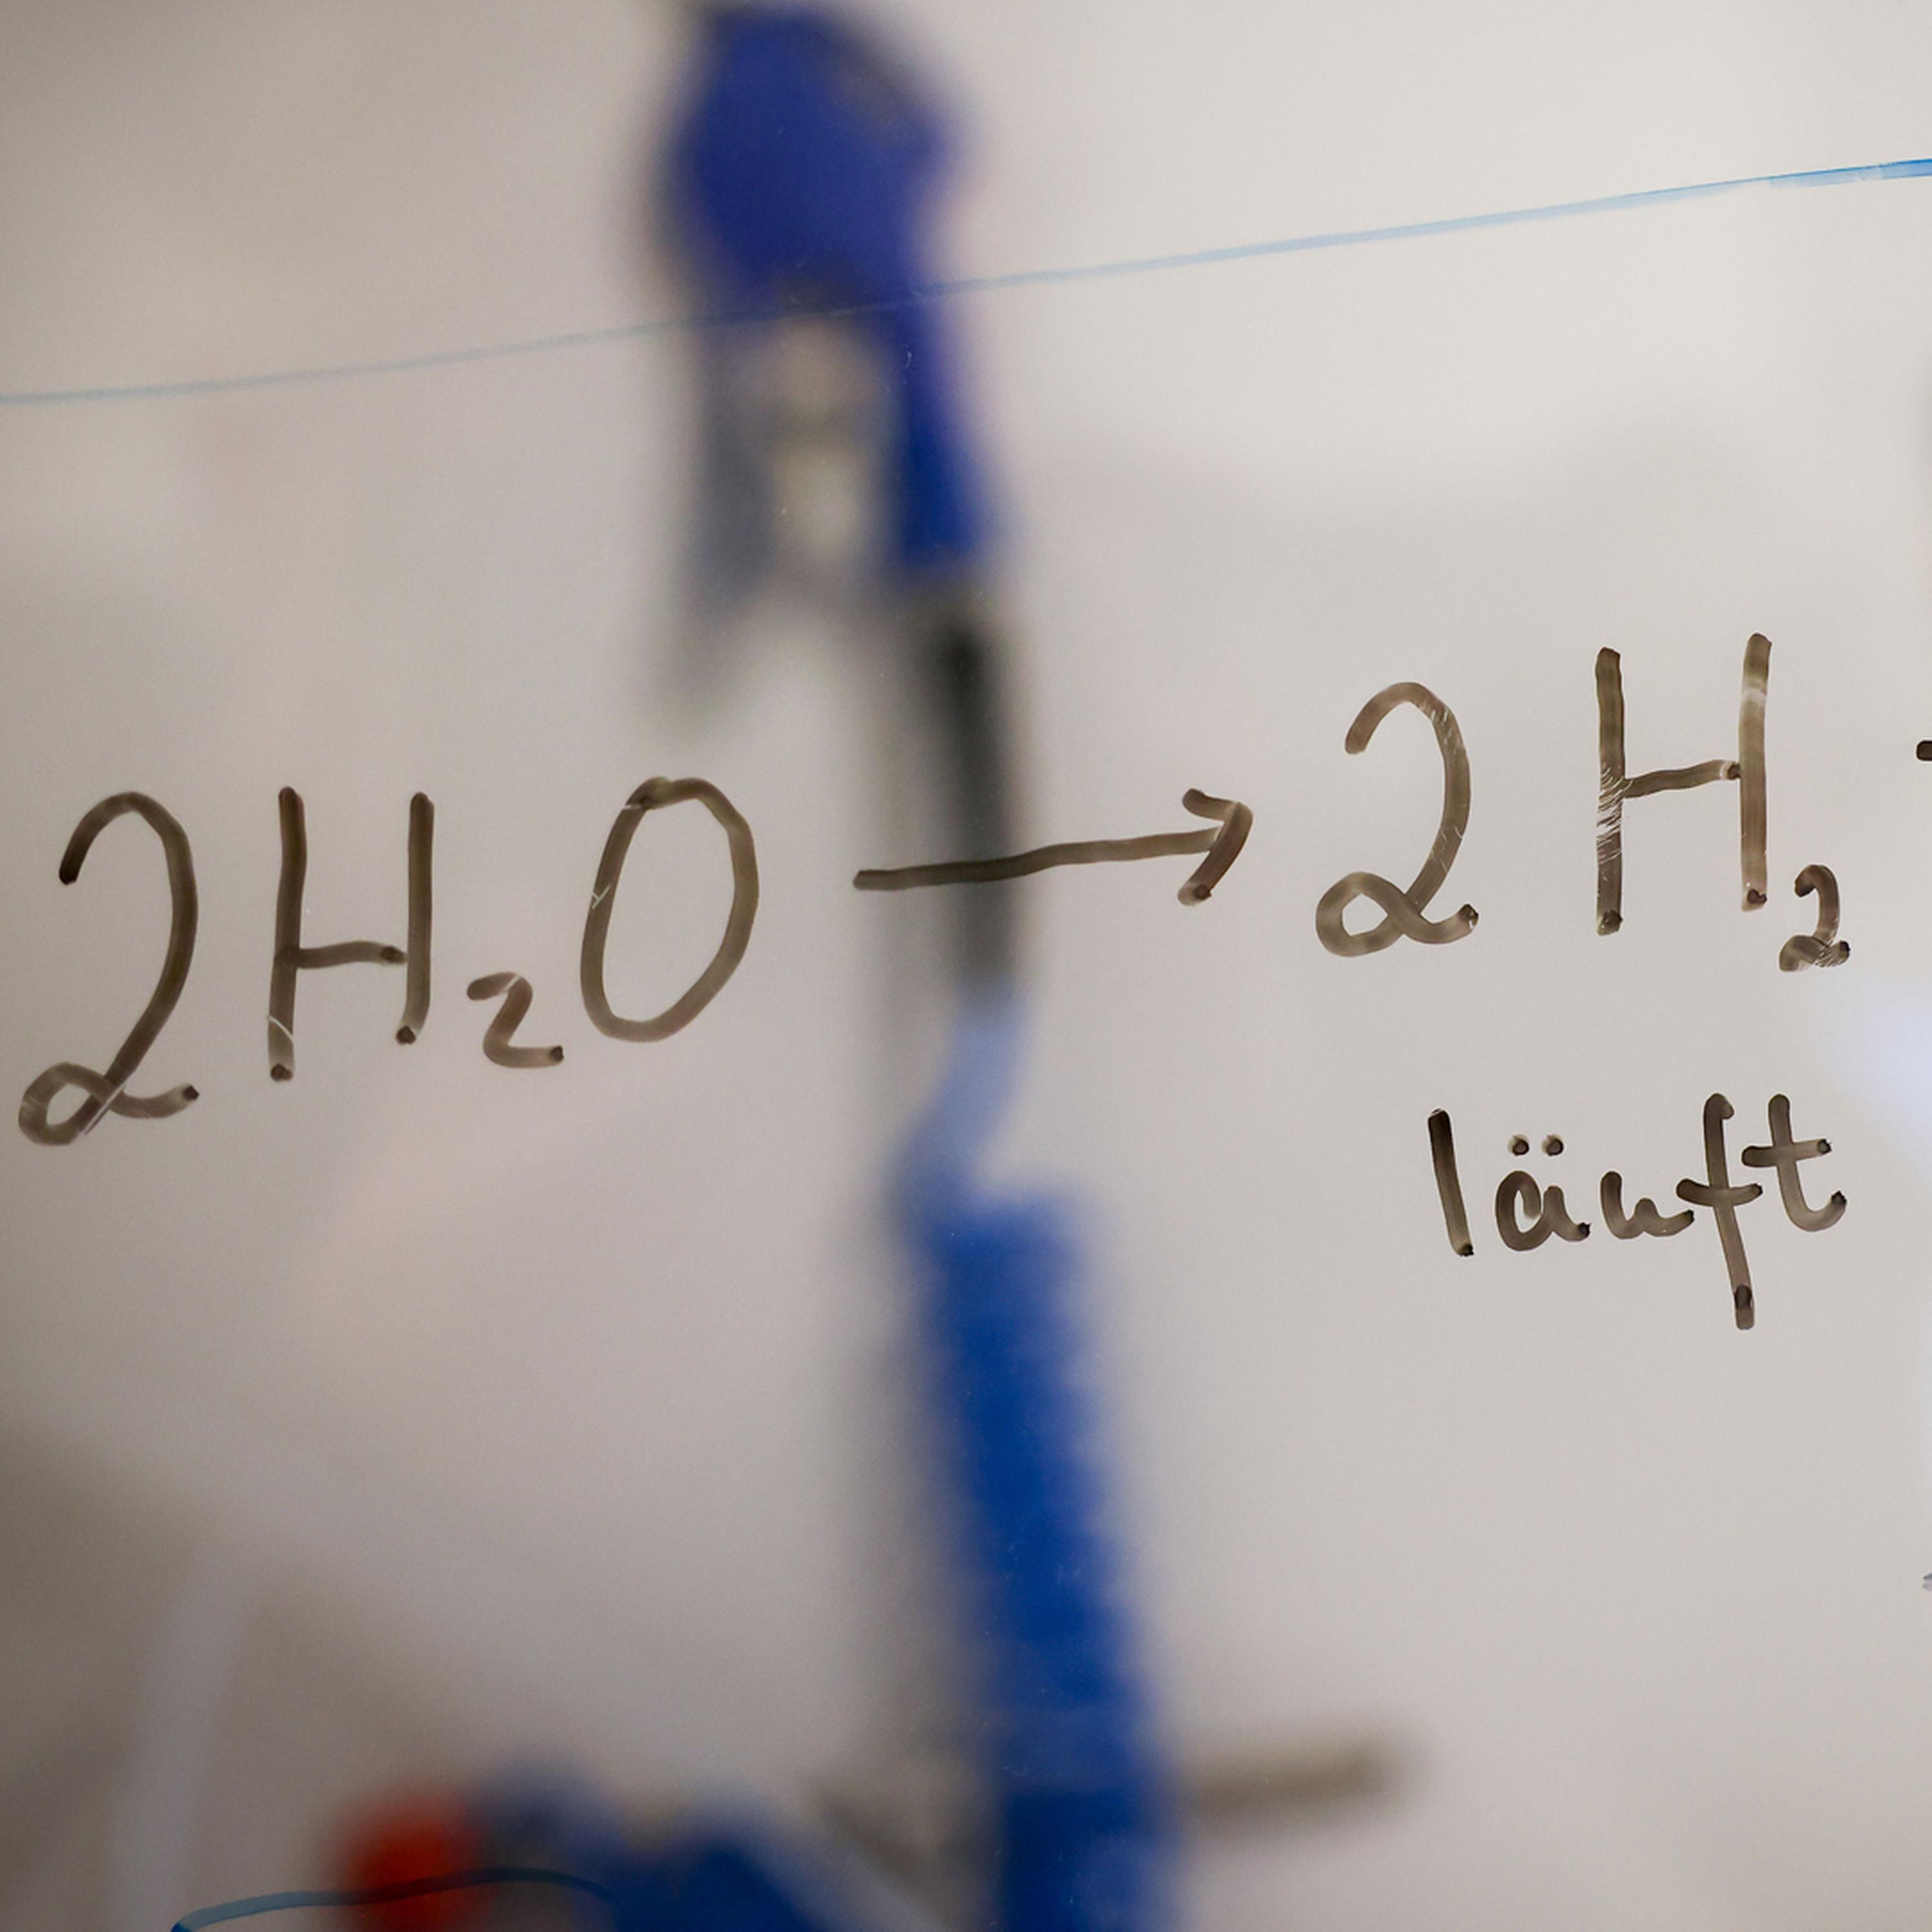 2H₂O → 2H₂
läuft